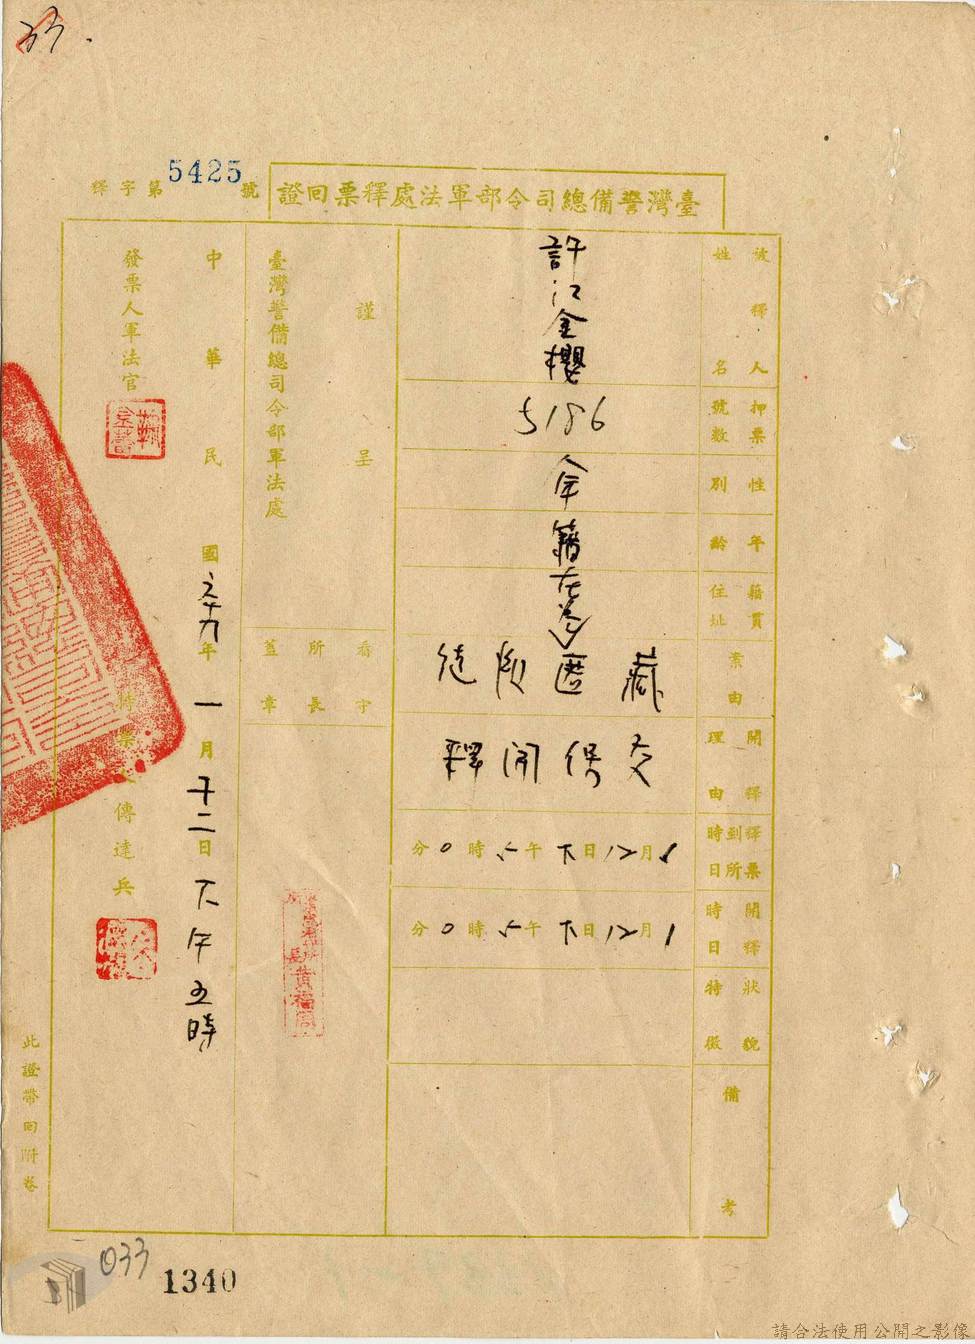 33.
臺灣警備總司令部軍法處釋票回證
釋字第5425號
被釋人姓名
許江金櫻
押票號數
5186
性別
年齡
籍貫住址
籍在卷
案由
藏匿叛徒
開釋理由
交保開釋
釋票到所時日
1月12日下午5時0分
開釋時日
1月12日下午5時0分
狀貌特徵
備考
謹呈
臺灣警備總司令部軍法處
看守所長蓋章
長黃
中華民國三十九年一月十二日下午五時
發票人軍法官
持票人傳達兵
此證帶回附卷
033
1340
請合法使用公開之影像